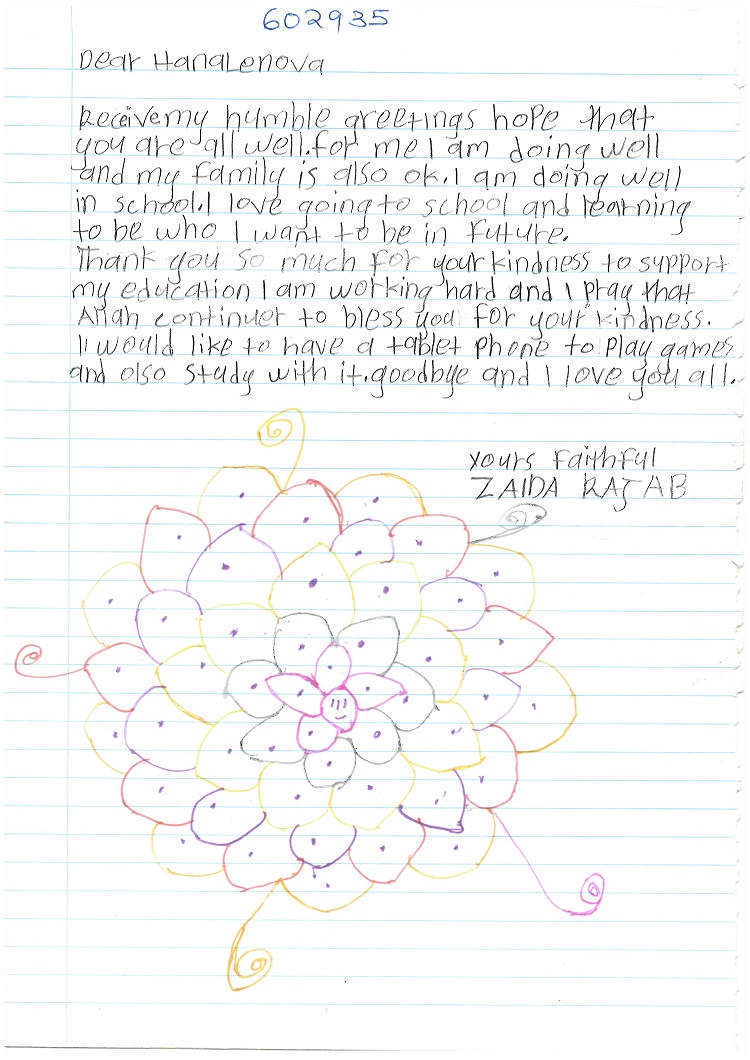 602935
Dear HanaLenova
Receivemy humble greetings hope that
you are all well.for me I am doing well
and my family is also ok.I am doing well
in school.I love going to school and learning
to be who I want to be in future.
Thank you so much for your kindness to support
my education I am working hard and I pray that
Allah continuer to bless you for your kindness.
I would like to have a tablet phone to play games
and olso study with it.goodbye and I love you all.
yours Faithful
ZAIDA RAJAB